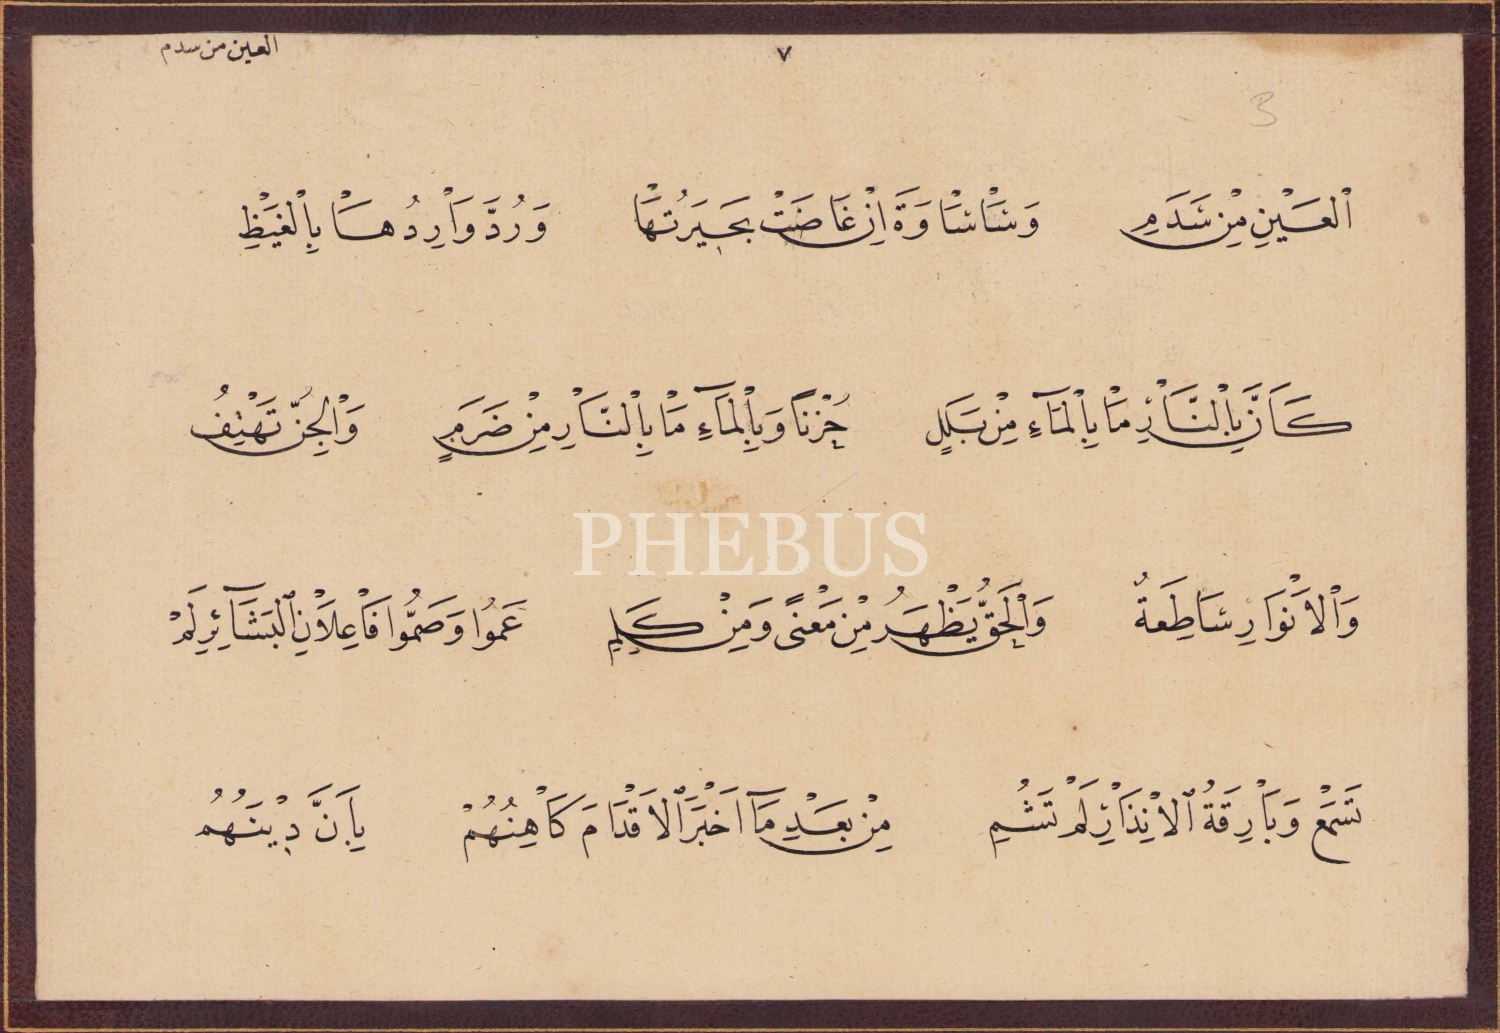 العين من سدم
٧
3
اَلْعَيْنِ مِنْ سَدَمِ وَسَاْ سَاْوَةَ اِنْ غَاضَتْ بَحَيَرَتُهَاْ وَرُدَّ وَاْرِدُهَاْ بِالْغَيْظِ
كَاَنَّ بِالْنَّاْرِ مَاْ بِالْمَآءِ مِنْ بَلَلٍ حُزْنَاً وَبِالْمَآءِ مَاْ بِالْنَّاْرِ مِنْ ضَرَمٍ وَالْجِنُّ تَهْتِفُ
وَالْاَنْوَاْرُ سَاطِعَةٌ وَالْحَقُّ يَظْهَرُ مِنْ مَعْنًى وَمِنْ كَلِمِ عَمُوْا وَصَمُّوْا فَاْعِلَاْنِ الْبَشَآئِرِ لَمْ
تَسْمَعْ وَبَاْرِقَةُ الْاِنْذَاْرِ لَمْ تَشُمِ مِنْ بَعْدِ مَآ اَخْبَرَ الْاَقْدَاْمَ كَاْهِنُهُمْ بِاَنَّ دِيْنَهُمُ
PHEBUS